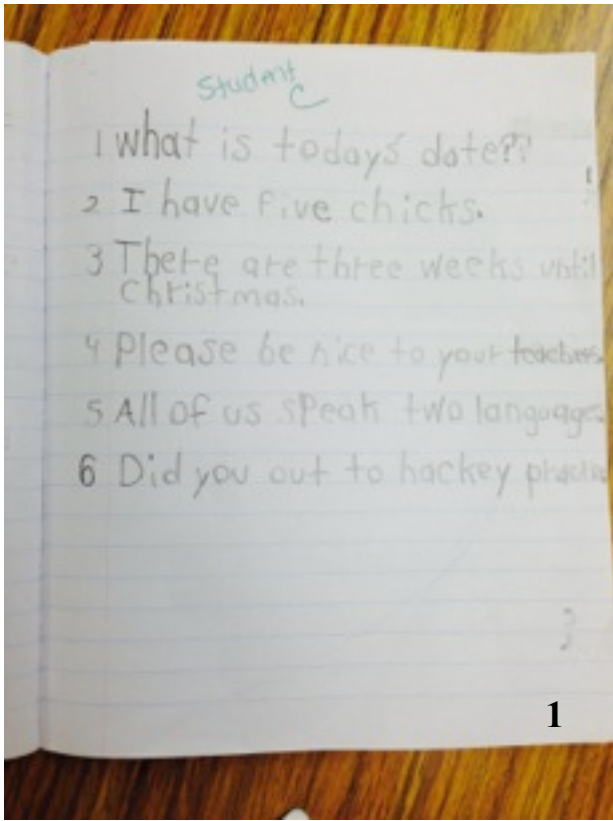 Student
C
1 what is todays' date??
2 I have five chicks.
3 There are three weeks until
christmas.
4 Please be nice to your teachers.
5 All of us speak two languages.
6 Did you out to hockey practice
1